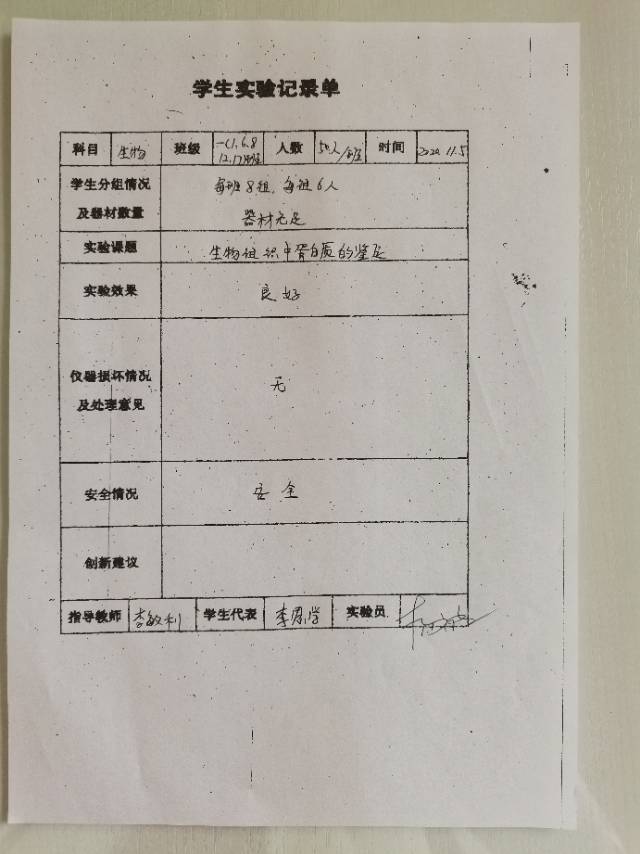 学生实验记录单
科目 生物 班级 一(1,6,8 人数 50人/班 时间 2020.11.5
12,17)班
学生分组情况 每班8组,每组6人
及器材数量 器材充足
实验课题 生物组织中蛋白质的鉴定
实验效果 良好
仪器损坏情况 无
及处理意见
安全情况 安全
创新建议
指导教师 李敏利 学生代表 实验员